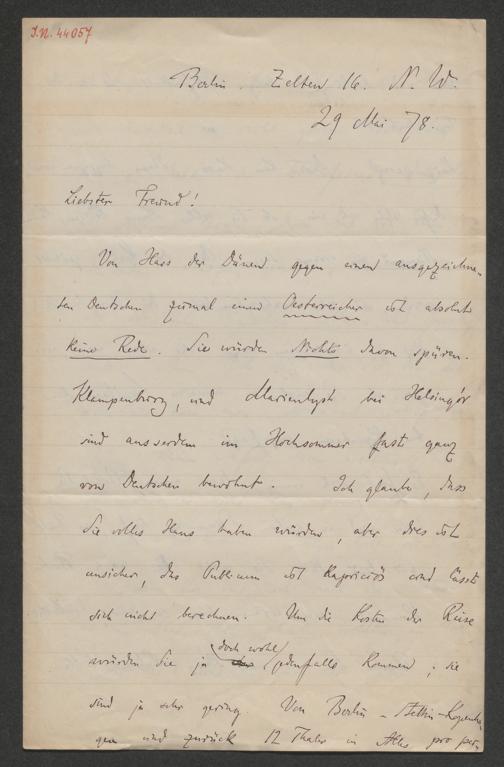 I.N. 44057
Berlin. Zelten 16. N. W.
29 Mai 78.
Liebster Freund!
Von Hass der Dänen gegen einen ausgezeichne-
ten Deutschen zumal einen Oesterreicher ist absolut
keine Rede. Sie würden Nichts davon spüren.
Klampenborg, und Marienlyst bei Helsingör
sind ausserdem im Hochsommer fast ganz
von Deutschen bewohnt. Ich glaube, dass
Sie volles Haus haben würden, aber dies ist
unsicher, das Publicum ist kapriciös und lässt
sich nicht berechnen. Um die Kosten der Reise
doch wohl
würden Sie ja jedenfalls kommen; sie
sind ja sehr gering. Von Berlin - Stettin - Kopenha-
gen und zurück 12 Thaler in Alles pro per-